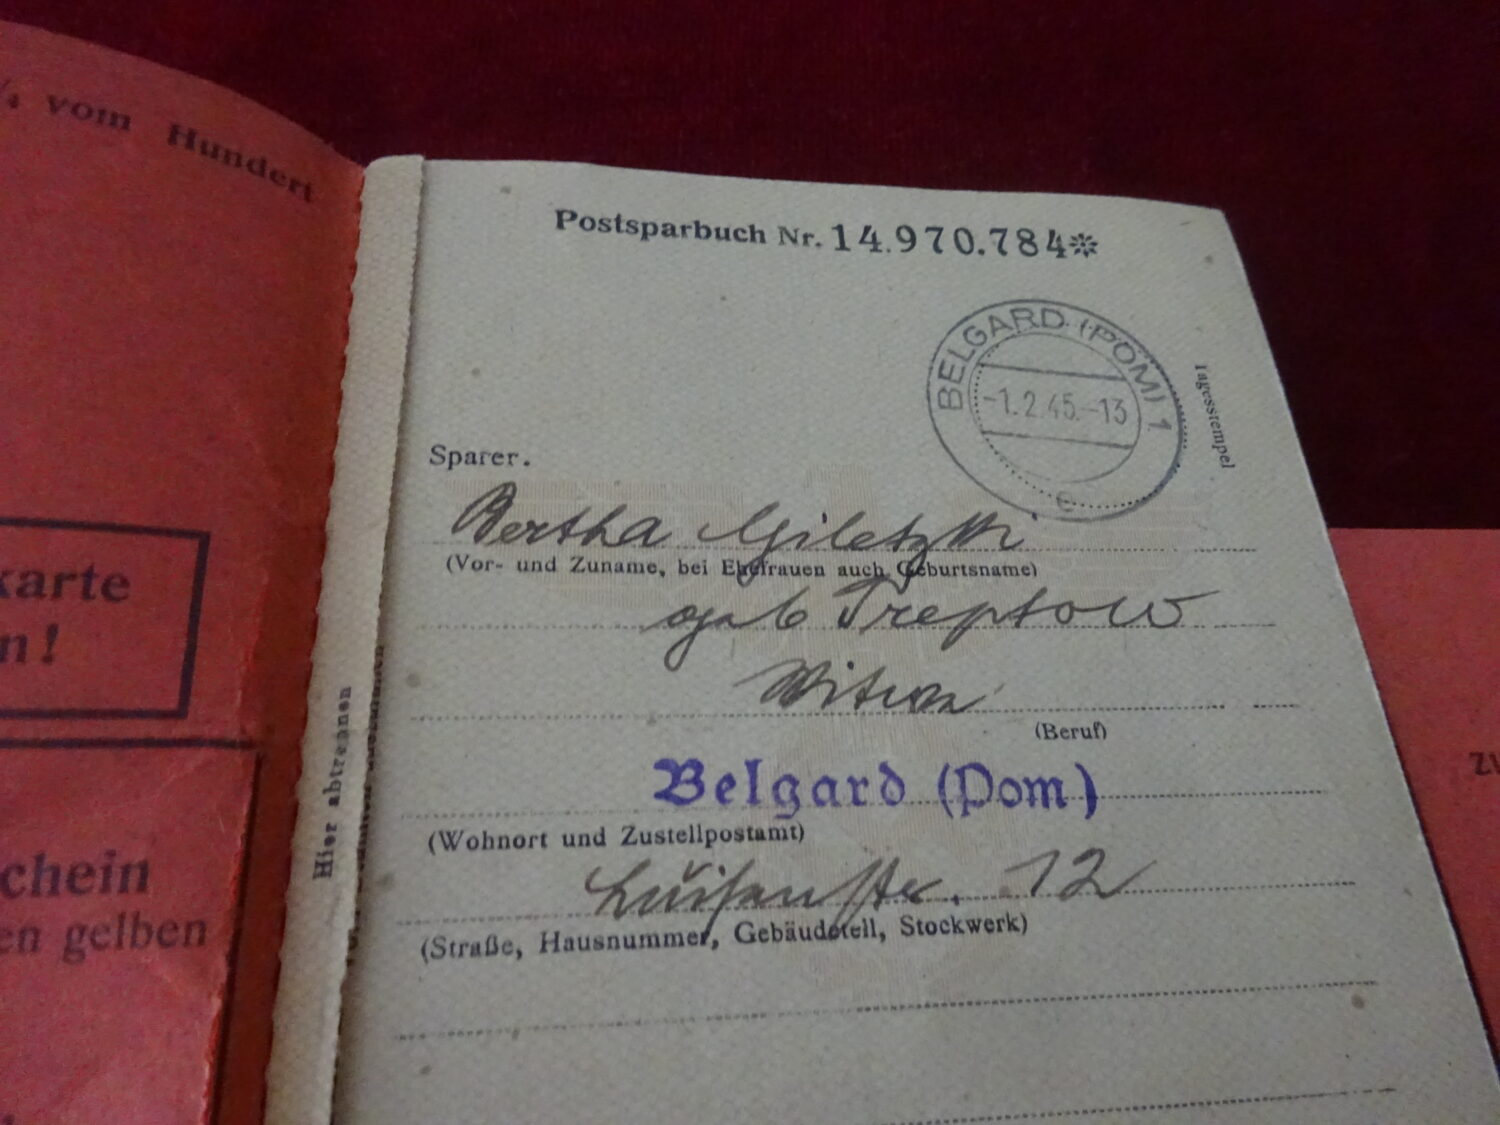 ¼ vom Hundert
karte
n!
chein
en gelben
Hier abtrennen
Postsparbuch Nr. 14.970.784*
BELGARD (POM) 1
-1.2.45.-13
c
Tagesstempel
Sparer.
Bertha Giletzki
(Vor- und Zuname, bei Ehefrauen auch Geburtsname)
geb Treptow
Witwe
(Beruf)
Belgard (Pom)
(Wohnort und Zustellpostamt)
Luisenstr. 12
(Straße, Hausnummer, Gebäudeteil, Stockwerk)